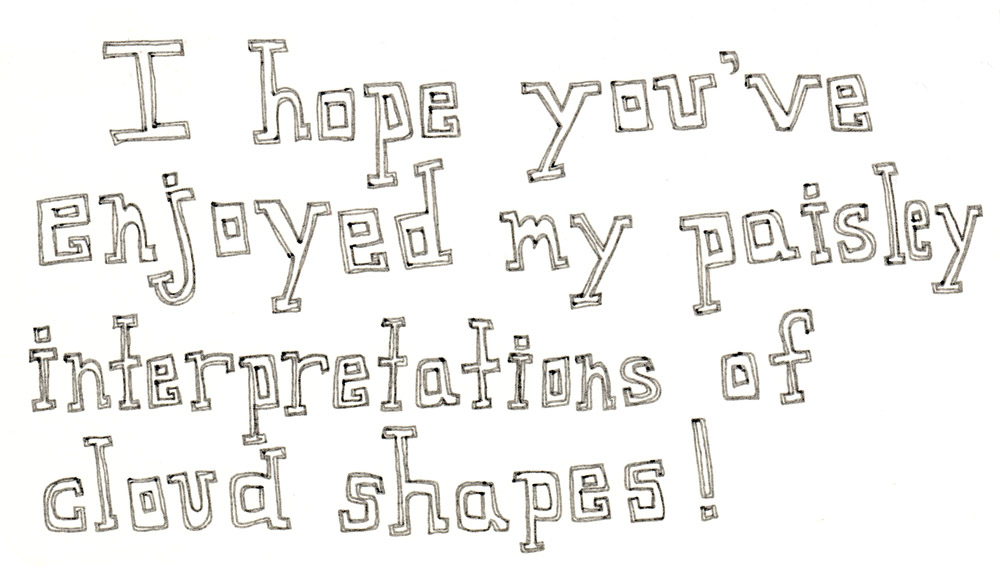 I hope you've
enjoyed my paisley
interpretations of
cloud shapes!